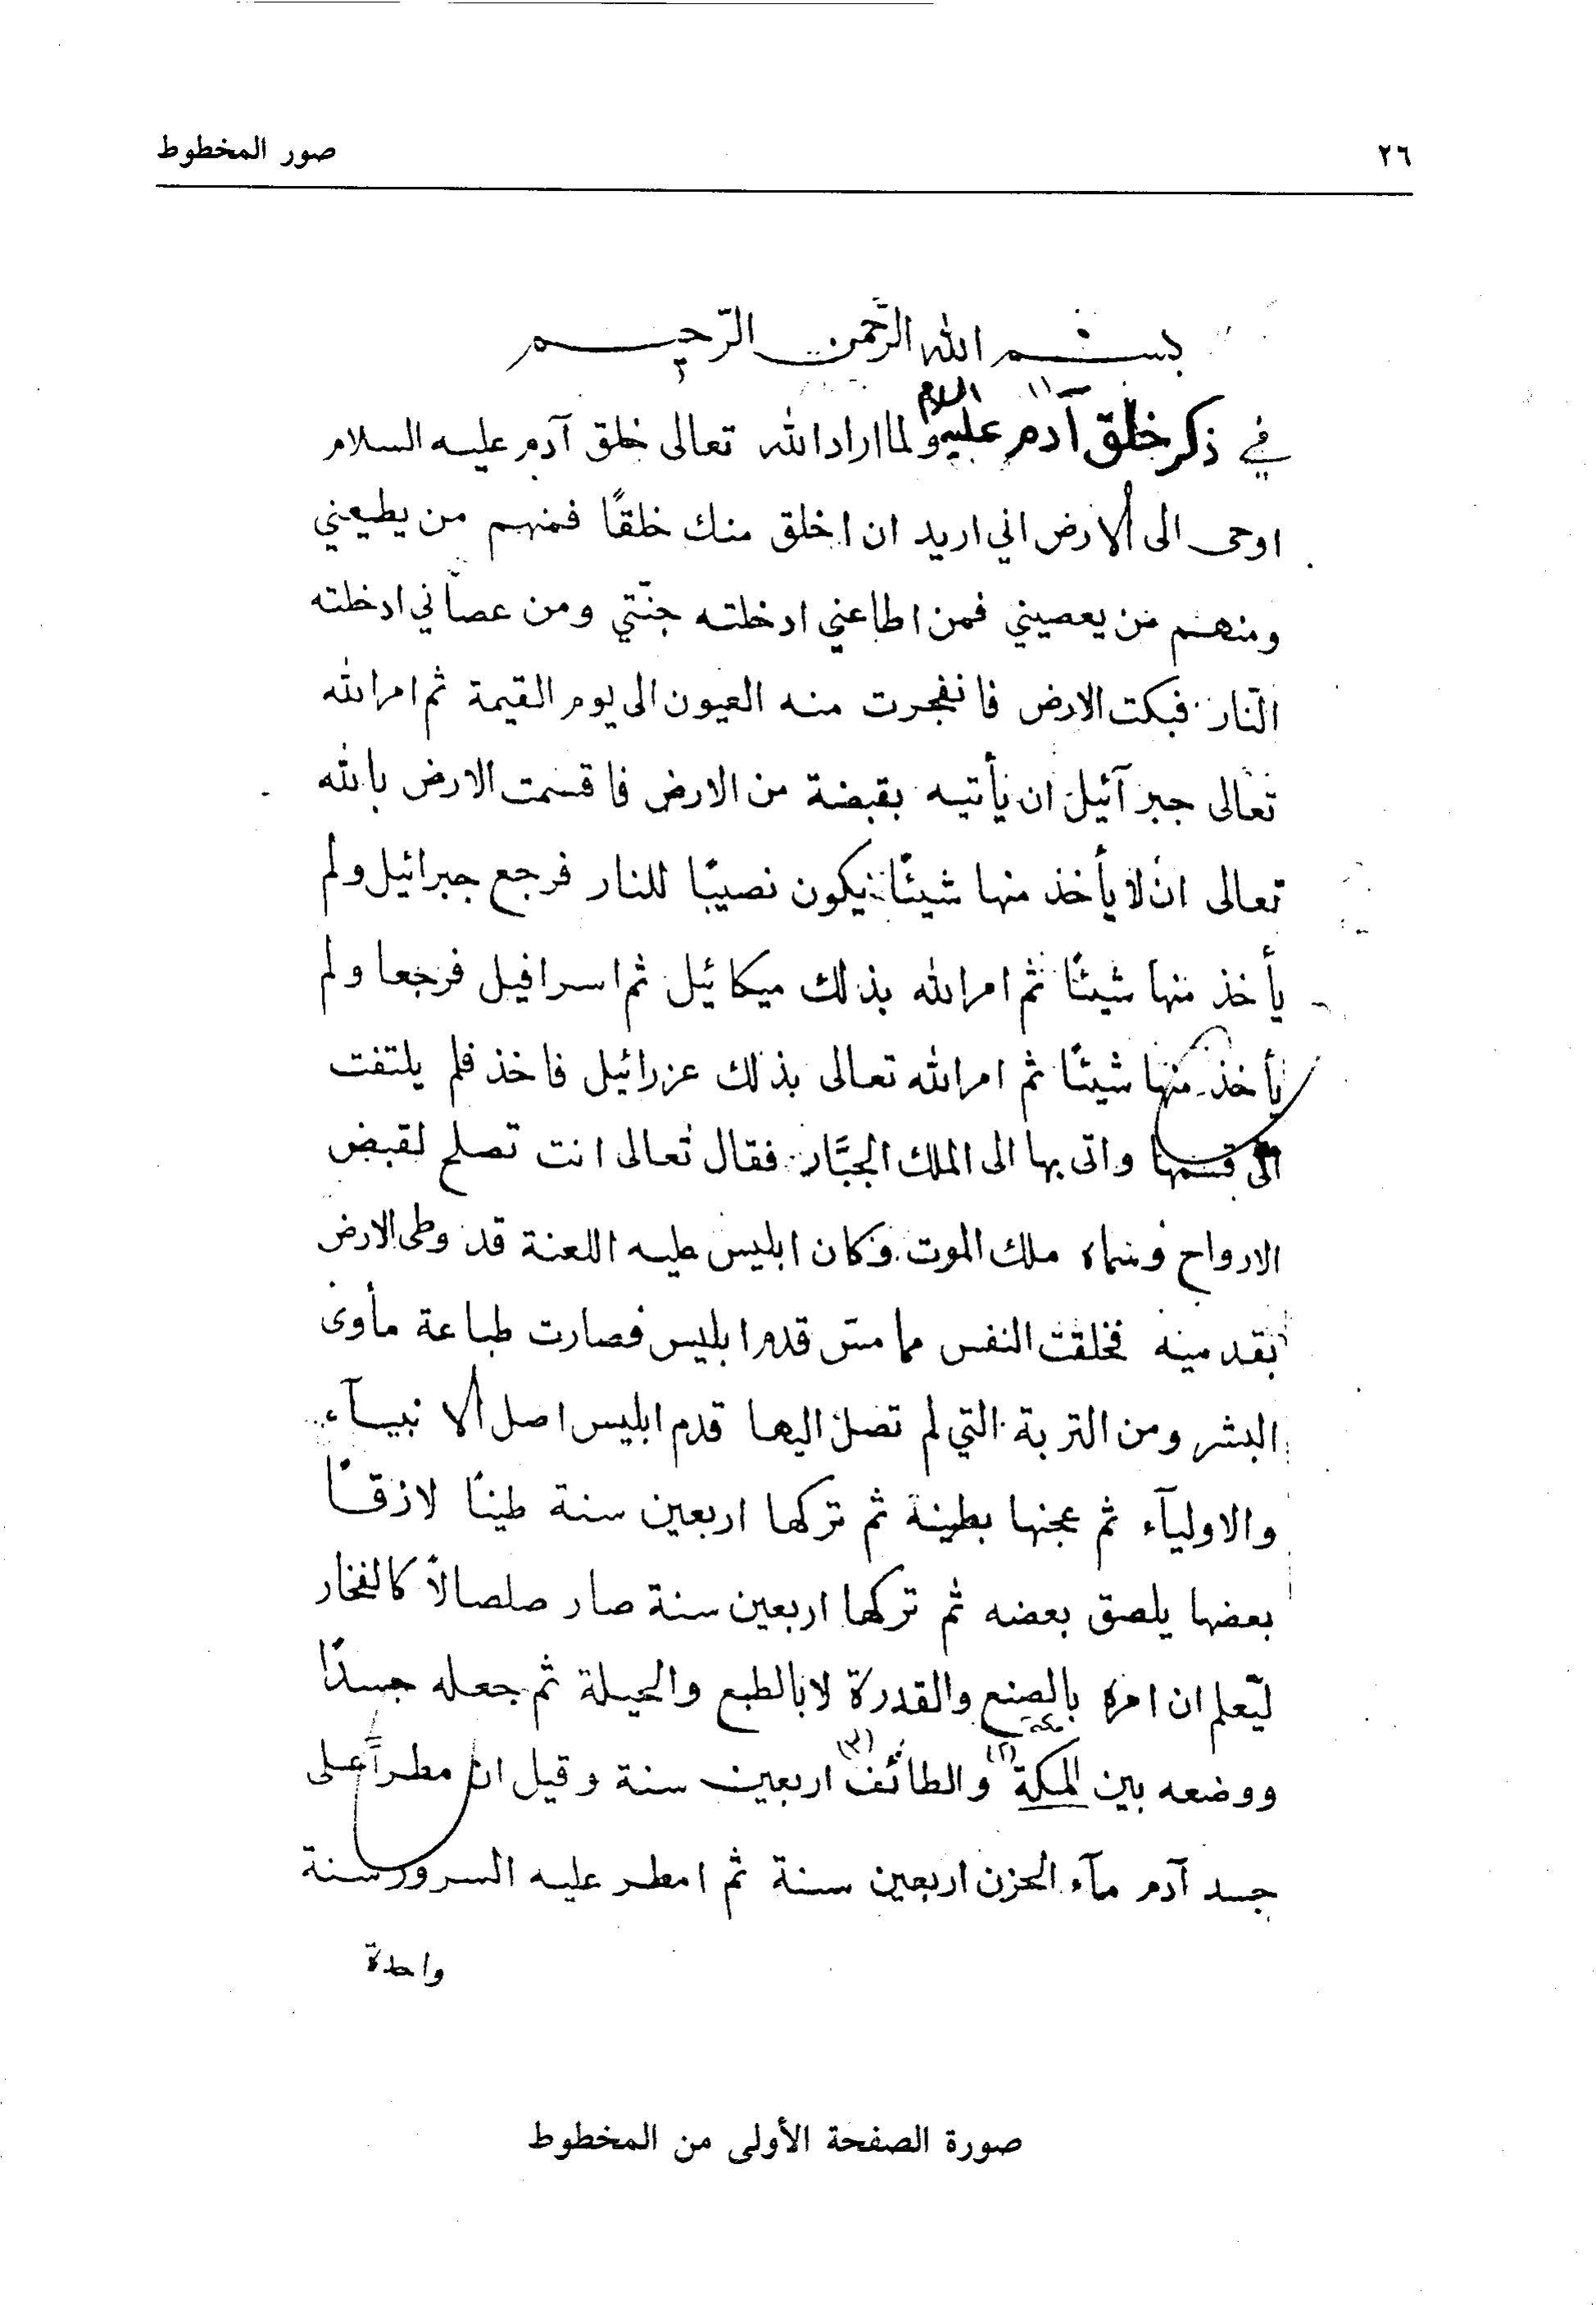 صور المخطوط
٢٦
بسم الله الرّحمن الرّحيم
في ذكر خلق آدم عليه السلام ولما اراد الله تعالى خلق آدم عليه السلام
اوحى الى الارض اني اريد ان اخلق منك خلقًا فمنهم من يطيعني
ومنهم من يعصيني فمن اطاعني ادخلته جنّتي ومن عصاني ادخلته
النّار فبكت الارض فانفجرت منه العيون الى يوم القيمة ثم امر الله
تعالى جبرآئيل ان يأتيه بقبضة من الارض فاقسمت الارض بالله
تعالى ان لا يأخذ منها شيئًا يكون نصيبًا للنار فرجع جبرائيل ولم
يأخذ منها شيئًا ثم امر الله بذلك ميكائيل ثم اسرافيل فرجعا ولم
يأخذ منها شيئًا ثم امر الله تعالى بذلك عزرائيل فاخذ فلم يلتفت
الى قسمها واتى بها الى الملك الجبّار فقال تعالى انت تصلح لقبض
الارواح وسماه ملك الموت وكان ابليس عليه اللعنة قد وطى الارض
بقدميه فخلقت النفس مما مسّ قدم ابليس فصارت طباعة مأوى
البشر ومن التربة التي لم تصل اليها قدم ابليس اصل الانبيآء
والاوليآء ثم عجنها بطينة ثم تركها اربعين سنة طينًا لازقًا
بعضها يلصق بعضه ثم تركها اربعين سنة صار صلصالاً كالفخار
ليّعلم ان امره بالصنع والقدرة لا بالطبع والحيلة ثم جعله جسدًا
مكة
ووضعه بين المكة (٢) والطائف (٣) اربعين سنة وقيل ان مطراً على
جسد آدم مآء الحزن اربعين سنة ثم امطر عليه السرور سنة
واحدة
صورة الصفحة الأولى من المخطوط